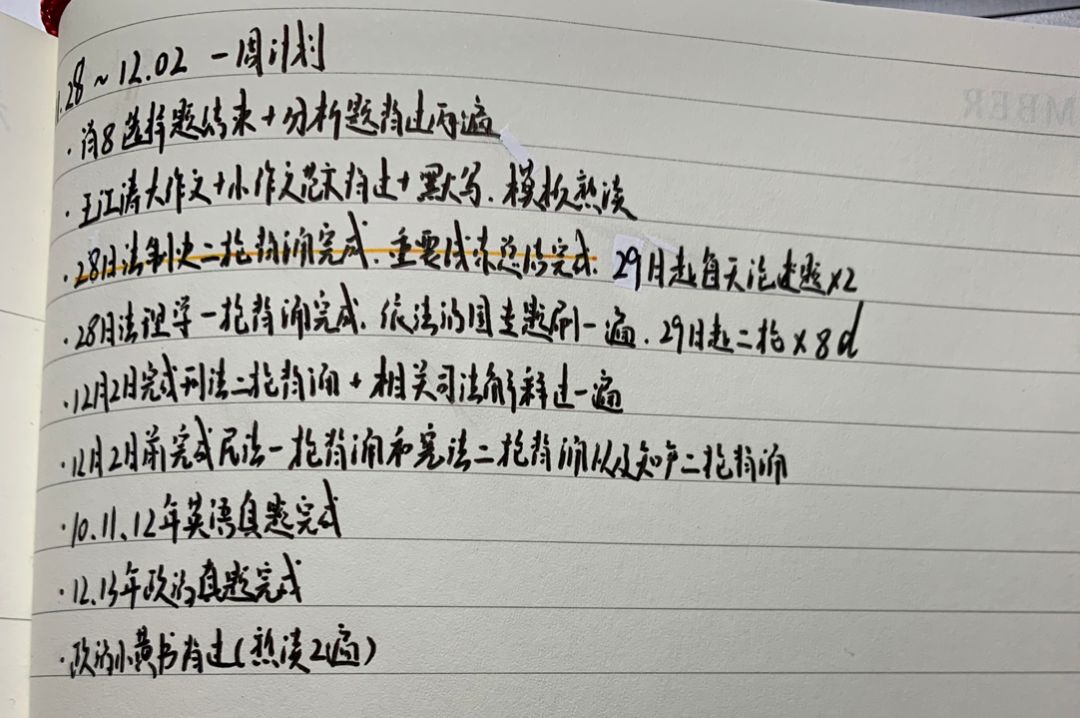 .28 ~ 12.02 一周计划
· 肖8选择题结束 + 分析题背过两遍
· 王江涛大作文 + 小作文范文背过 + 默写、模板熟读
· 28日法制史二轮背诵完成、重要线索总结完成、29日起每天论述题×2
· 28日法理学一轮背诵完成、依法治国专题刷一遍、29日起二轮×8d
· 12月2日完成刑法二轮背诵 + 相关司法解释过一遍
· 12月2日前完成民法一轮背诵和宪法二轮背诵以及知产二轮背诵
· 10、11、12年英语真题完成
· 12、13年政治真题完成
· 政治小黄书背过(熟读2遍)